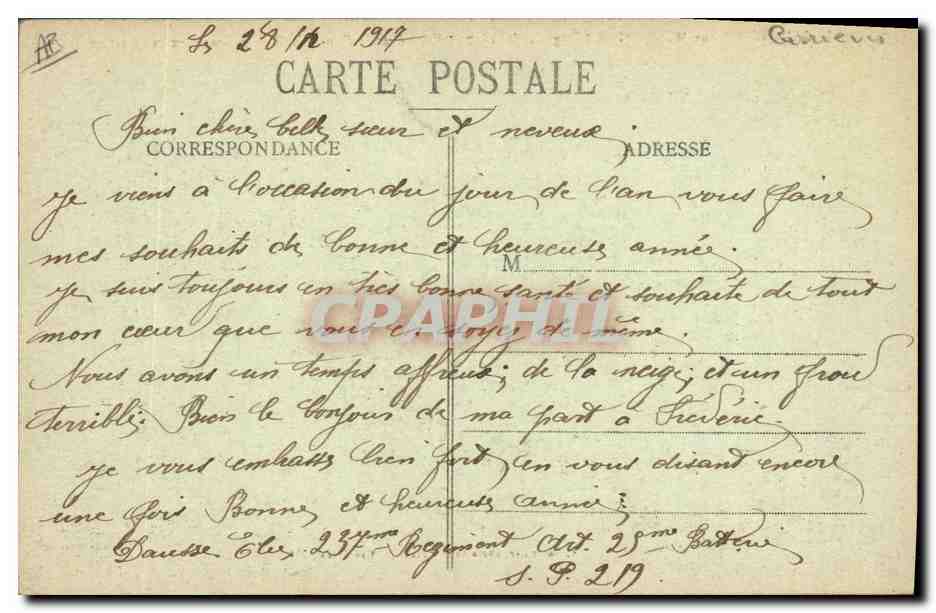 AB
Le 28/12 1917
CARTE POSTALE
Bien chère belle sœur et neveux
CORRESPONDANCE
ADRESSE
Je viens à l'occasion du jour de l'an vous faire
mes souhaits de bonne et heureuse année.
M
Je suis toujours en très bonne santé et souhaite de tout
CPAPHIL
mon cœur que vous en soyez de même.
Nous avons un temps affreux; de la neige; et un froid
terrible. Bien le bonjour de ma part à Fréderic.
Je vous embrasse bien fort, en vous disant encore
une fois Bonne et heureuse année:
Dausse Elie 237me Regiment Art. 25me Batterie
S. P. 219.